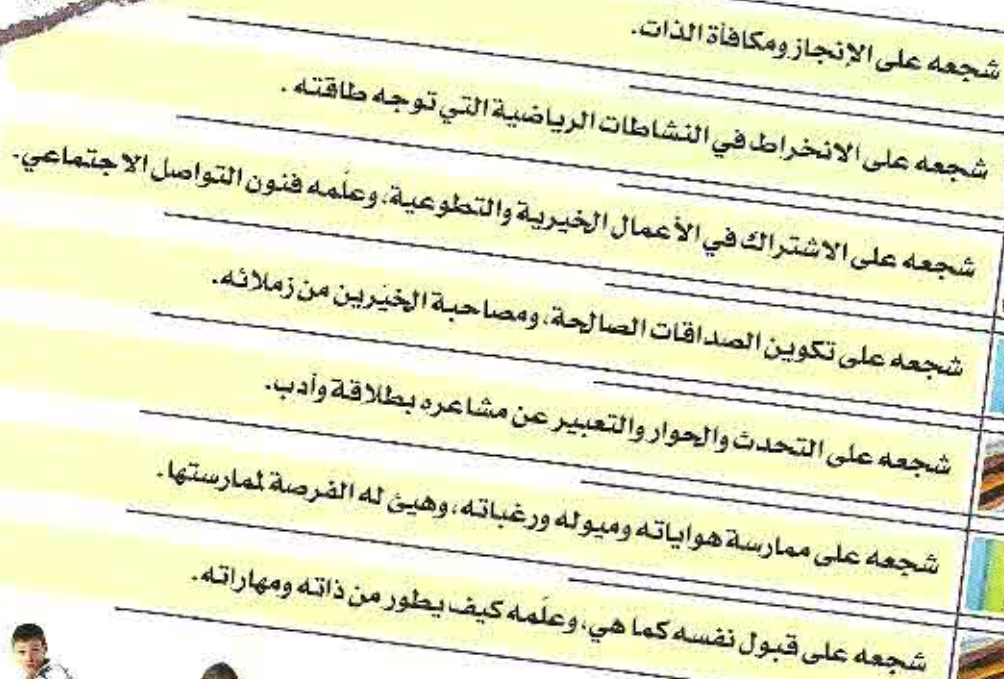 شجعه على الإنجاز ومكافأة الذات.
شجعه على الانخراط في النشاطات الرياضية التي توجه طاقته .
شجعه على الاشتراك في الأعمال الخيرية والتطوعية، وعلّمه فنون التواصل الاجتماعي.
شجعه على تكوين الصداقات الصالحة، ومصاحبة الخيّرين من زملائه.
شجعه على التحدث والحوار والتعبير عن مشاعره بطلاقة وأدب.
شجعه على ممارسة هواياته وميوله ورغباته، وهيئ له الفرصة لممارستها.
شجعه على قبول نفسه كما هي، وعلّمه كيف يطور من ذاته ومهاراته.